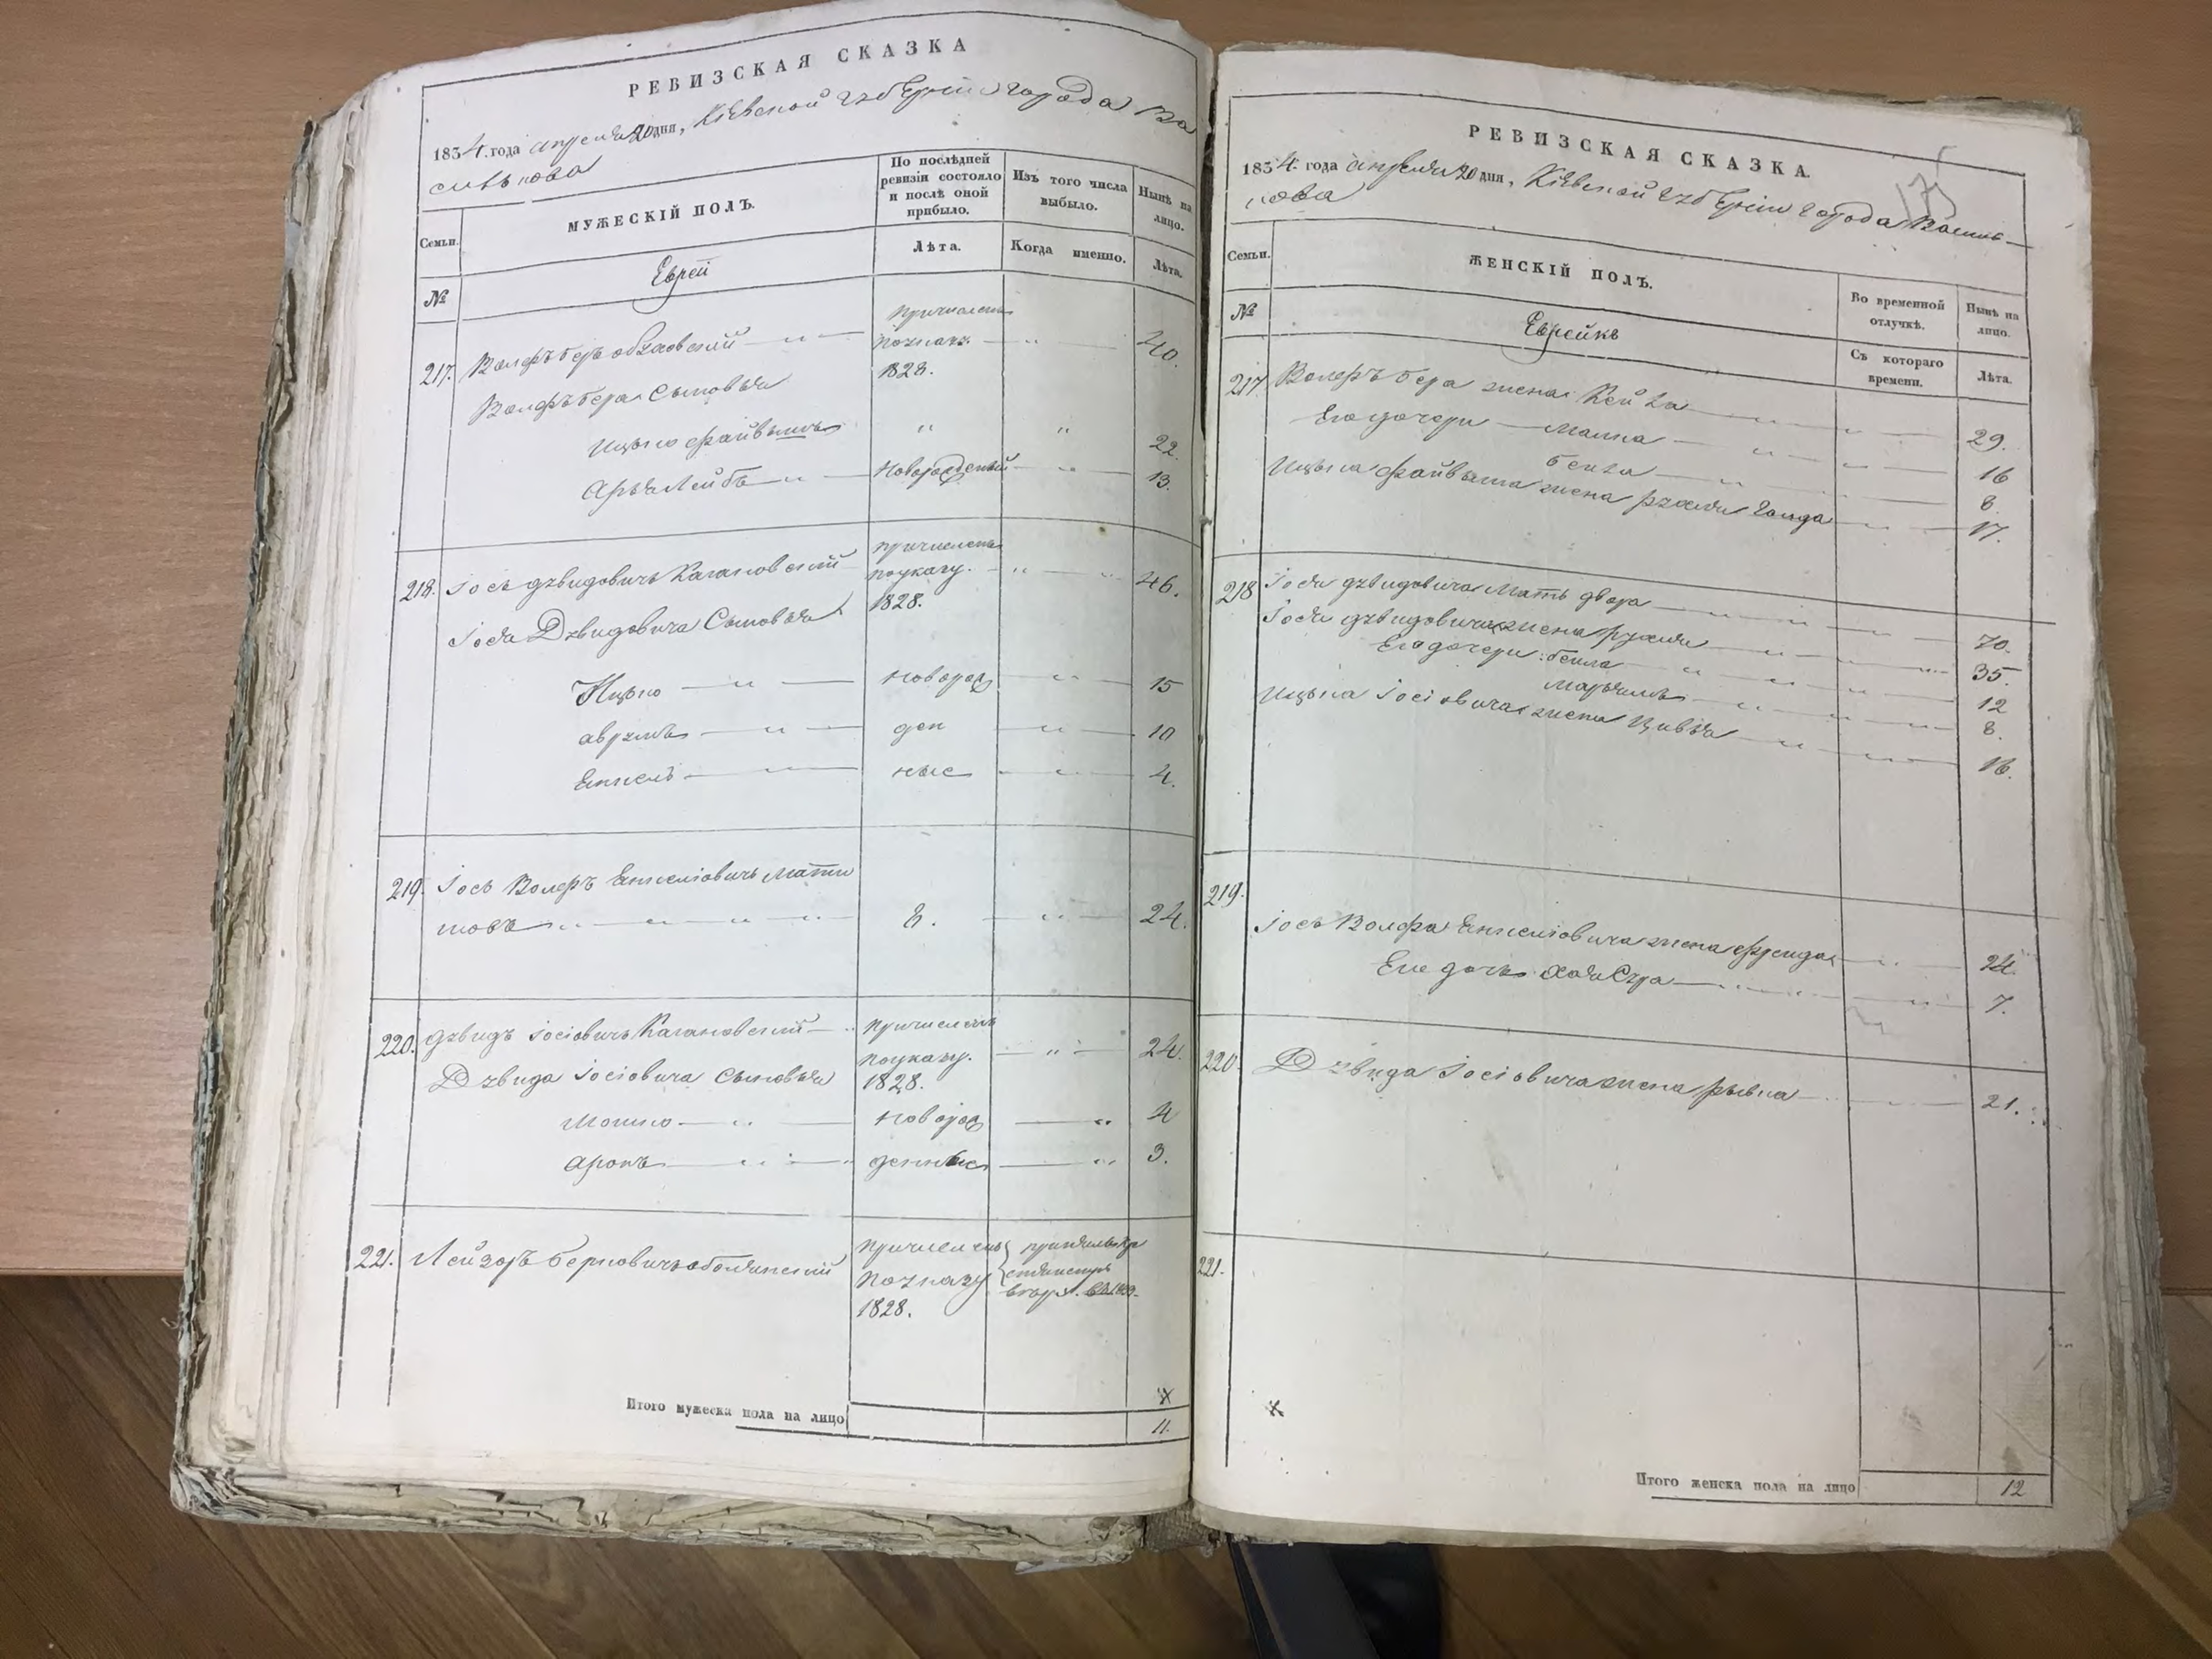 РЕВИЗСКАЯ СКАЗКА
1834. года апреля 20 дня, Кіевской губерніи города Ва
силькова
Семьи.
МУЖЕСКІЙ ПОЛЪ.
По послѣдней ревизіи состояло и послѣ оной прибыло.
Изъ того числа выбыло.
Нынѣ на лицо.
Лѣта.
Когда именно.
Лѣта.
№
Еврей
217. Волфъ беръ " причисленъ поуказу 1828. " 40.
Волфъ бера Сыновья
Ицько файвышъ " " 22.
Аръя Лейбъ " Новорожденный " 13.
218. Іось дувидовичъ Кагановскій причисленъ поуказу. 1828. " 46.
Іося Дувидовича Сыновья
Ицько " новорож " 15
аврумъ " ден " 10
Енкель " ные " 4.
219. Іось Волфъ Енкеліовичъ
" " " " 8. " 24.
220. дувидъ Іосіовичъ Кагановскій " причисленъ поуказу. 1828. " 24.
Дувида Іосіовича Сыновья
Мошко " новорож " 4
аронъ " " денные " 3.
221. Лейзоръ берковичъ причисленъ поуказу 1828.
X
Итого мужеска пола на лицо 11.
РЕВИЗСКАЯ СКАЗКА.
175
1834. года апреля 20 дня, Кіевской губерніи города Василь—
кова
Семьи.
ЖЕНСКІЙ ПОЛЪ.
Во временной отлучкѣ.
Нынѣ на лицо.
№
Еврейкѣ
Съ котораго времени.
Лѣта.
217. Волфъ бера жена Кейла " " 29.
Его дочери — малка " " 16
бейла " 8
Ицька файвыша жена рухля голда " 17.
218 Іося дувидовича мать двора " " 70.
Іося дувидовича жена рухля " 35.
Его дочери: бейла " " 12
марьямъ " " 8.
Ицька Іосіовича жена Цивья " " 16.
219.
Іось Волфа Енкеліовича жена фрейда " 24.
Его дочь хая Сура " " 7.
220. Дувида Іосіовича жена рывка " 21.
221.
X
Итого женска пола на лицо 12